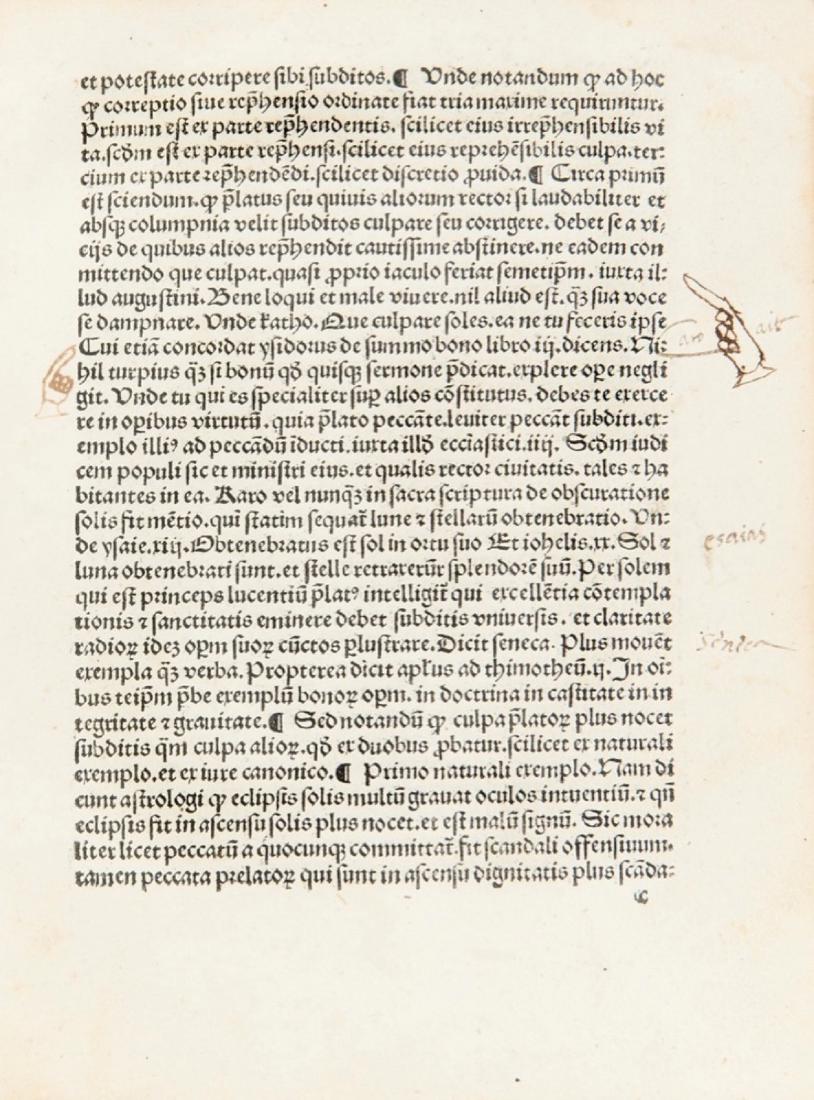 et potestate corripere sibi subditos.¶ Unde notandum ꝙ ad hoc
ꝙ correptio siue rep̄hensio ordinate fiat tria maxime requiruntur.
Primum est ex parte rep̄hendentis. scilicet eius irrep̄hensibilis vi
ta.scd̄m est ex parte rep̄hensi.scilicet eius reprehēsibilis culpa.ter-
cium ex parte rep̄hendēdi.scilicet discretio ꝓuida.¶ Circa primū
est sciendum.ꝙ p̄latus seu quiuis aliorum rector si laudabiliter et
absqꝫ columpnia velit subditos culpare seu corrigere. debet se a vi/
cijs de quibus alios rep̄hendit cautissime abstinere.ne eadem con
mittendo que culpat.quasi ꝓprio iaculo feriat semetip̄m. iuxta il-
lud augustini.Bene loqui et male viuere.nil aliud est.qꝫ sua voce
se dampnare. Unde katho. Que culpare soles.ea ne tu feceris ipse
Cui etiā concordat ysidorus de summo bono libro iij. dicens.Ni-
hil turpius qꝫ si bonū qd̄ quisqꝫ sermone p̄dicat.explere oꝑe negli
git.Unde tu qui es specialiter suꝑ alios cōstitutus.debes te exerce
re in oꝑibus virtutū.quia p̄lato peccāte.leuiter peccāt subditi.ex-
emplo illiꝰ ad peccādū īducti.iuxta illd̄ eccīastici.iiij. Scd̄m iudi
cem populi sic et ministri eius.et qualis rector ciuitatis. tales ⁊ ha
bitantes in ea. Raro vel nunqꝫ in sacra scriptura de obscuratione
solis fit mētio.quī statim sequat̄ lune ⁊ stellarū obtenebratio. Un-
de ysaie.xiij.Obtenebratus est sol in ortu suo Et iohelis.xx. Sol ⁊
luna obtenebrati sunt.et stelle retraxerūt splendorē suū.Per solem
qui est princeps lucentiū p̄latꝰ intelligit̄ qui excellētia cōtempla
tionis ⁊ sanctitatis eminere debet subditis vniuersis. et claritate
radioꝝ idez oꝑm suoꝝ cūctos ꝑlustrare.Dicit seneca. Plus mouēt
exempla qꝫ verba.Propterea dicit aplꝰs ad thimotheū.ij. In oī-
bus teip̄m p̄be exemplū bonoꝝ oꝑm. in doctrina in castitate in in
tegritate ⁊ grauitate.¶ Sed notandū ꝙ culpa p̄latoꝝ plus nocet
subditis qm̄ culpa alioꝝ.qd̄ ex duobus ꝓbatur.scilicet ex naturali
exemplo.et ex iure canonico.¶ Primo naturali exemplo.Nam di
cunt astrologi ꝙ eclipsis solis multū grauat oculos intuentiū.⁊ qn̄
eclipsis fit in ascensu solis plus nocet.et est malū signū. Sic mora
liter licet peccatū a quocunqꝫ committat̄.fit scandali offensiuum.
tamen peccata prelatoꝝ qui sunt in ascensu dignitatis plus scāda-
esaias
Seneca